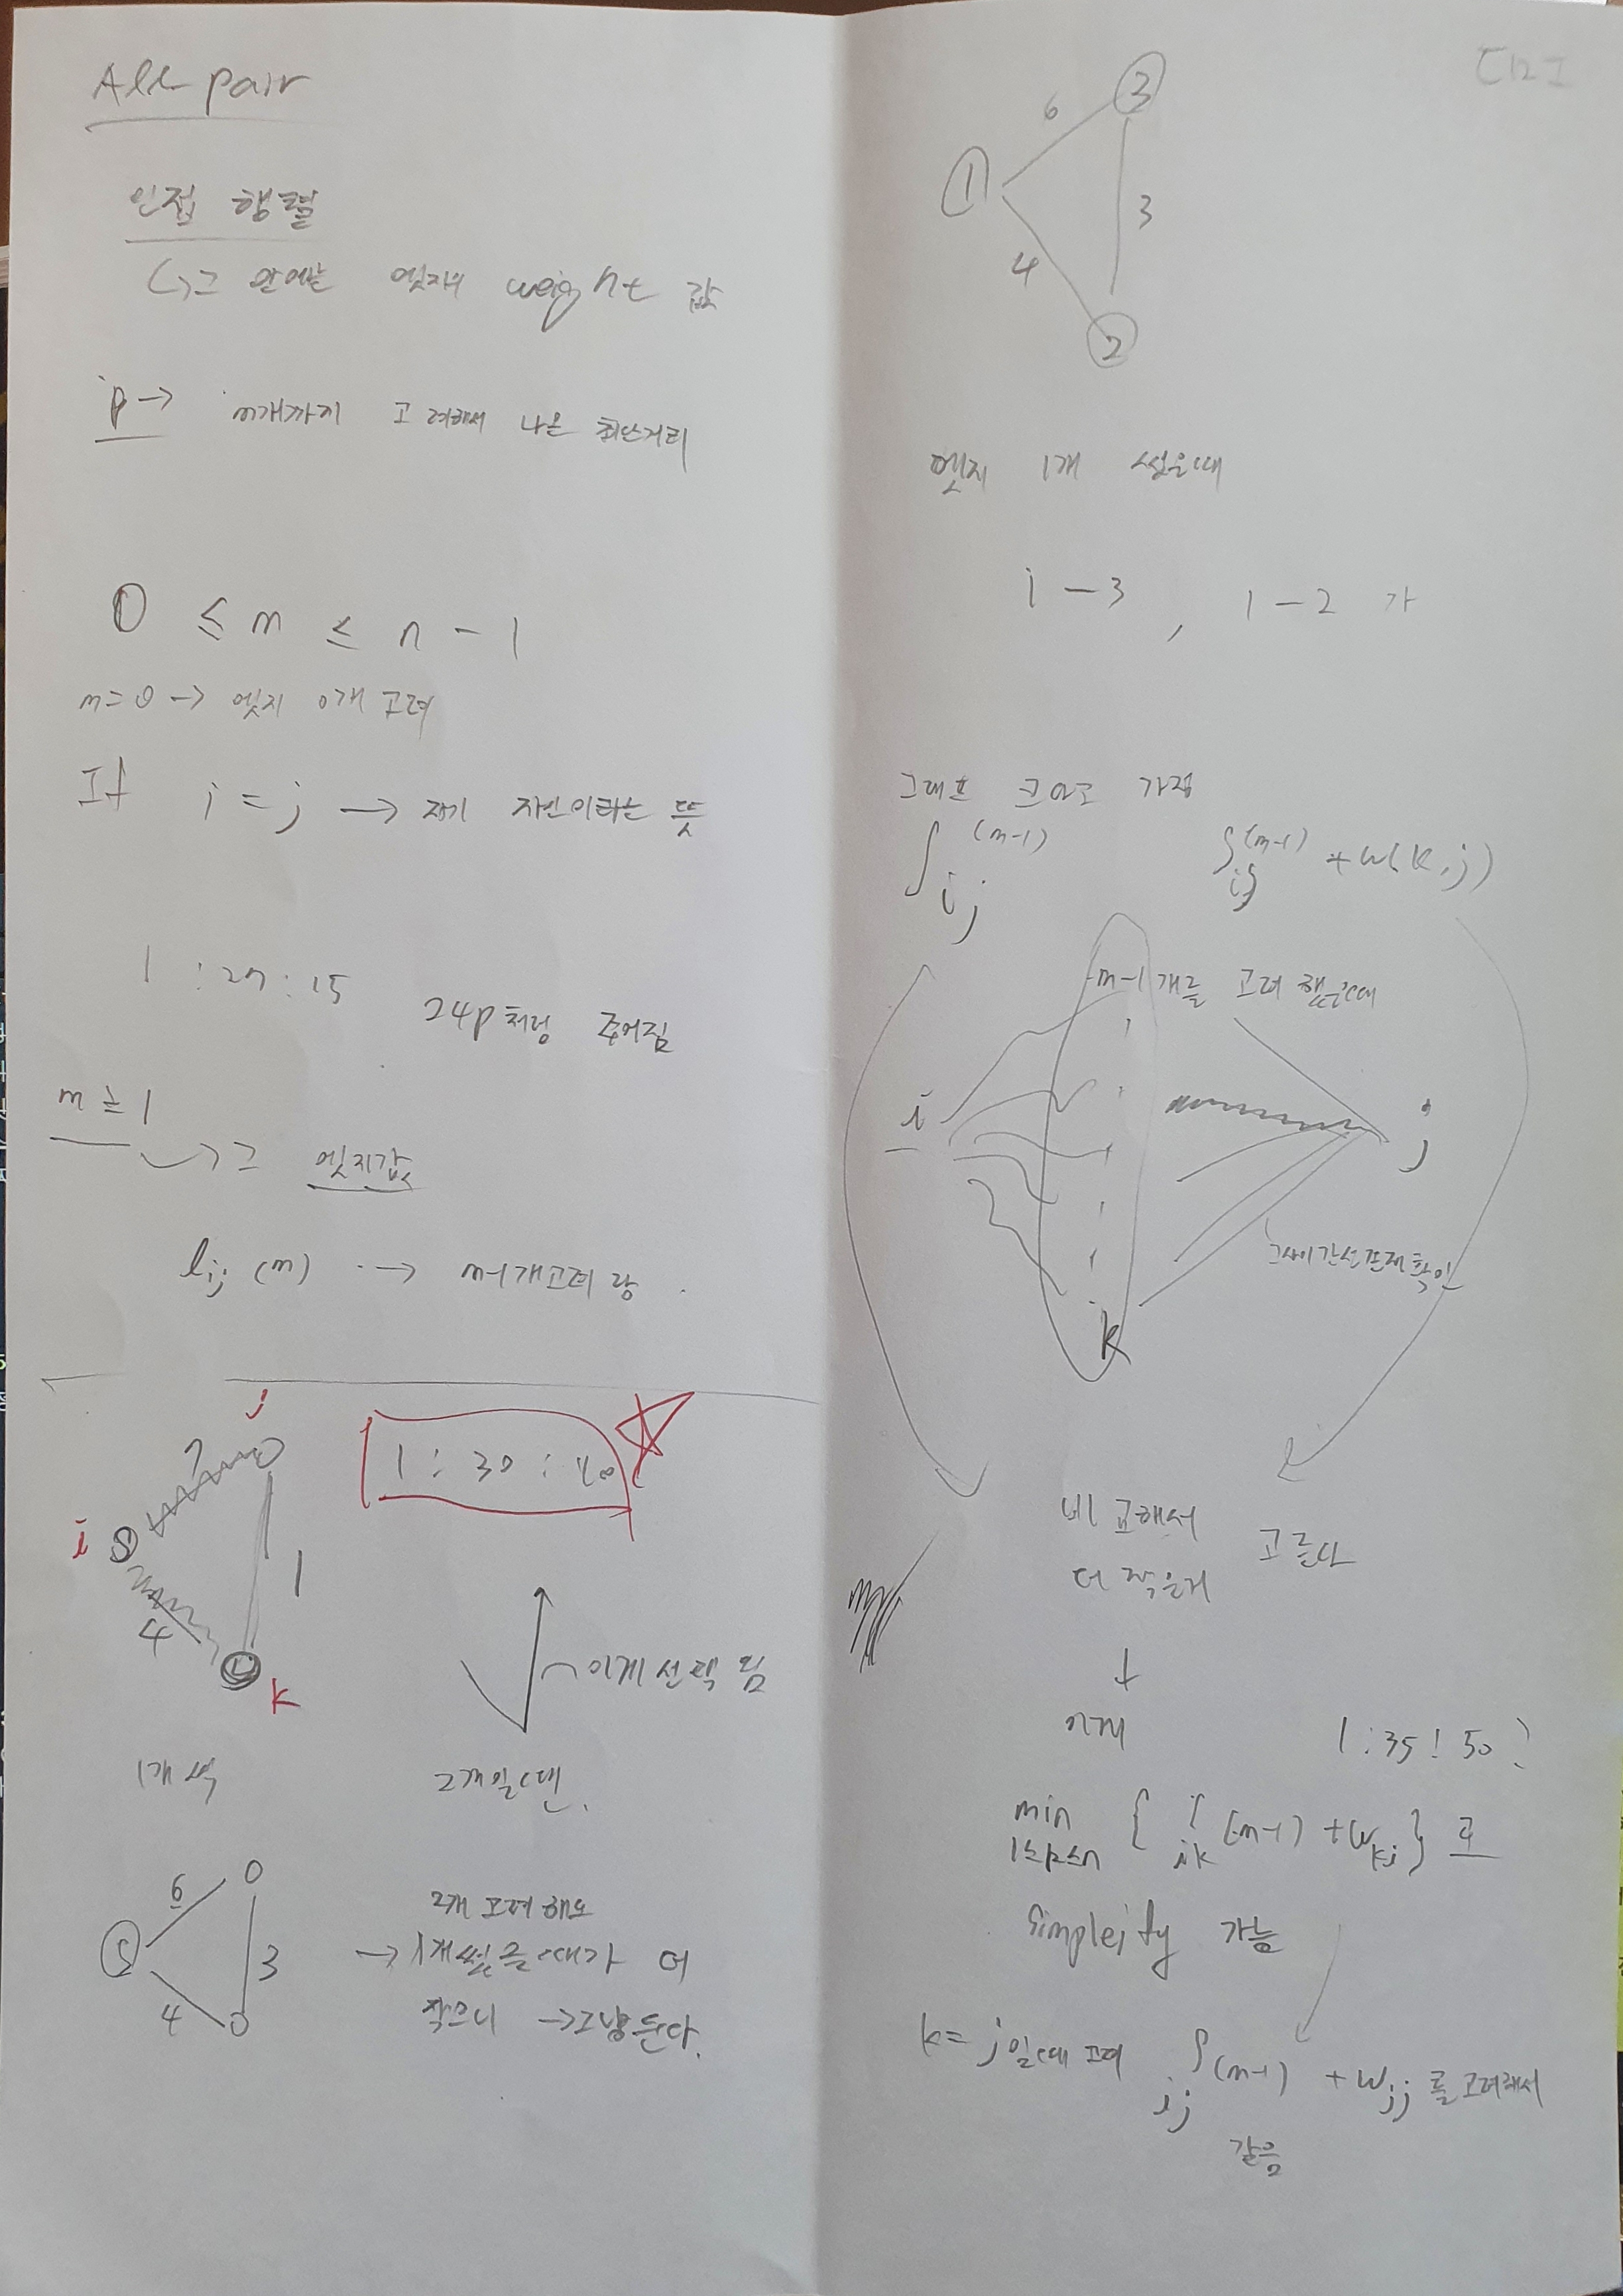 All pair
인접 행렬
↳ 그 안에는 엣지의 weight 값
P → m개까지 고려해서 나온 최단거리
0 ≤ m ≤ n - 1
m=0 → 엣지 0개 고려
If i = j → 자기 자신이라는 뜻
1 : 27 : 15
24p처럼 주어짐
m ≥ 1
→ 그 엣지값
lij (m) → m-1개고려 랑
j
?
i
S
1
4
k
1 : 30 : 40
이게 선택 됨
1개
2개일땐.
6
S
3
4
2개 고려해도
→ 1개썼을때가 더
작으니 → 그냥 둔다.
3
6
1
3
4
2
엣지 1개 썼을때
1 - 3 , 1 - 2 가
그래프 크다고 가정
l ij (m-1)
l ij (m-1) + w(k, j)
m-1개를 고려 했을때
i
j
그사이간선존재확인
k
비교해서
더 작은거
고른다
↓
이게
1 : 35 : 50 ?
min 1≤k≤n { l ik (m-1) + wkj } 로
simpleify 가능
k = j 일때 고려 l ij (m-1) + wjj 를 고려해서
같음